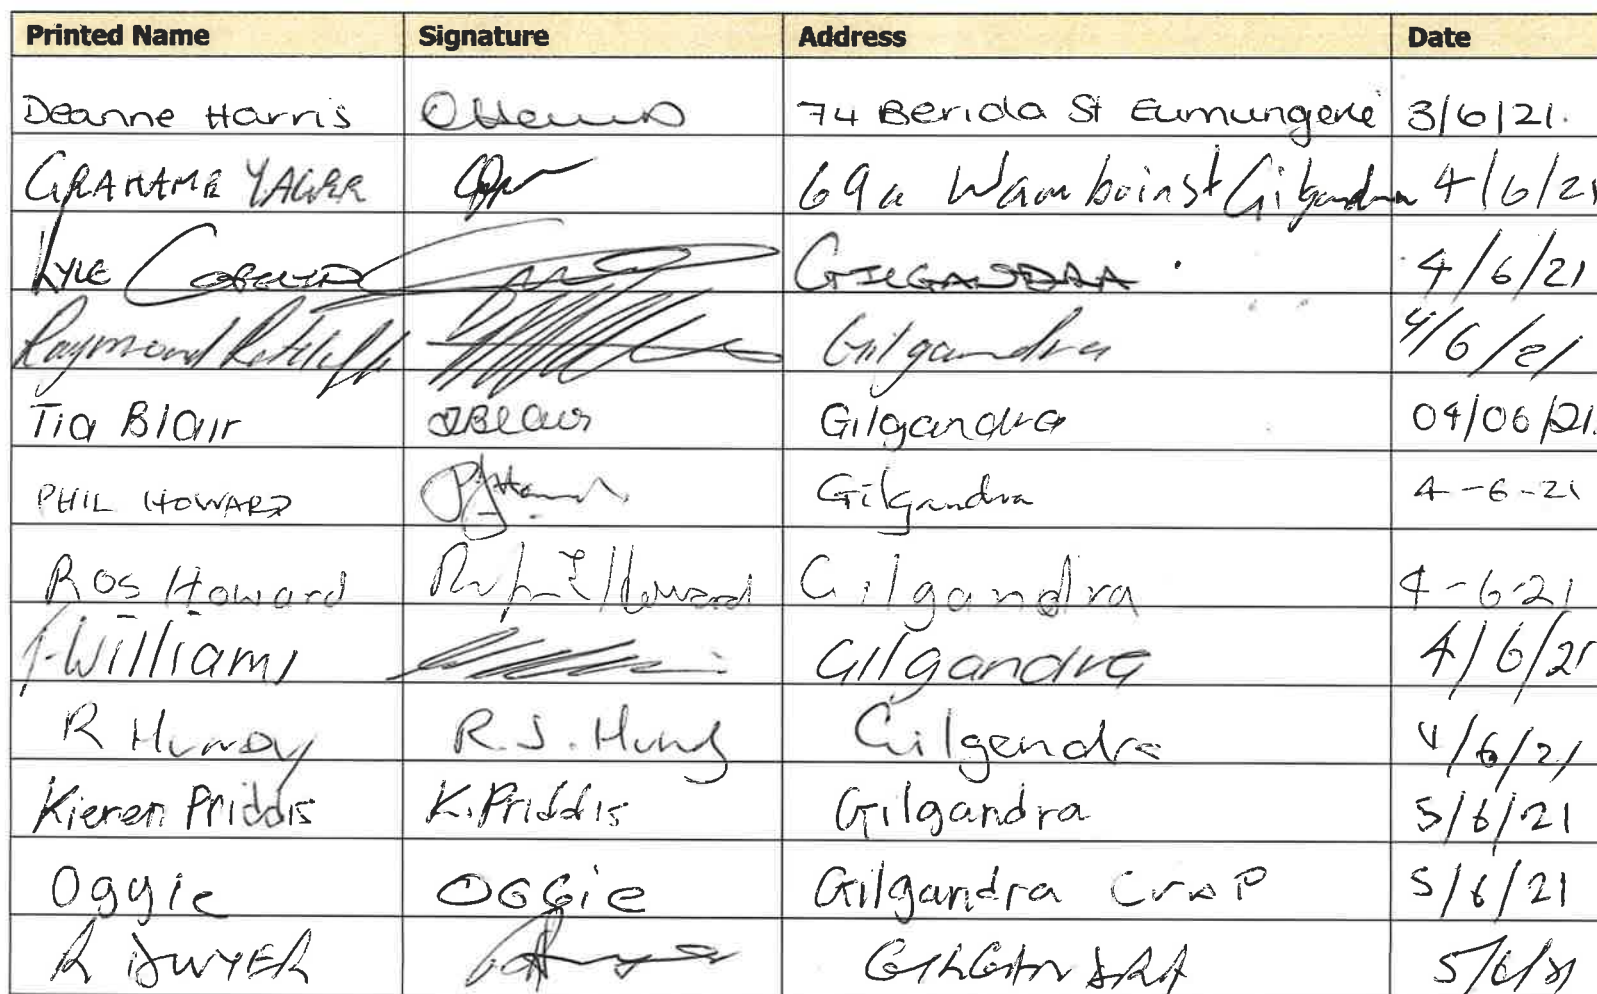 Printed Name Signature Address Date
Deanne Harris 74 Berida St Eumungerie 3/6/21.
GRAHAME YAGER 69a Wamboin st Gilgandra 4/6/21
KYLE GILGANDRA 4/6/21
Raymond Ratcliffe Gilgandra 4/6/21
Tia Blair TBlair Gilgandra 04/06/21.
PHIL HOWARD Gilgandra 4-6-21
Ros Howard Howard Gilgandra 4-6-21
J. Williams Gilgandra 4/6/21
R HUNDY R.J. Hundy Gilgandra 4/6/21
Kieren Priddis K. Priddis Gilgandra 5/6/21
Oggie OGGie Gilgandra 5/6/21
R DWYER GILGANDRA 5/6/21